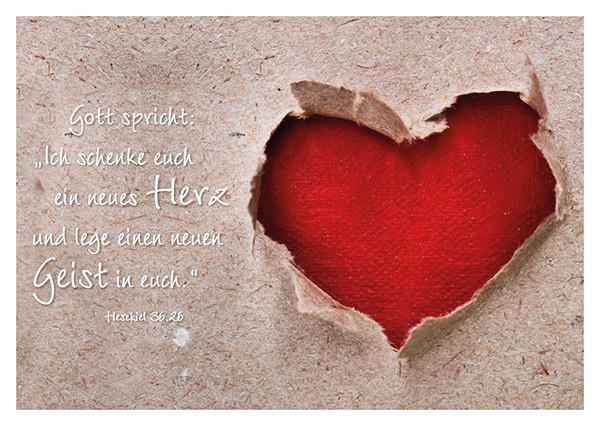 Gott spricht:
„Ich schenke euch
ein neues Herz
und lege einen neuen
Geist in euch.“
Hesekiel 36,26